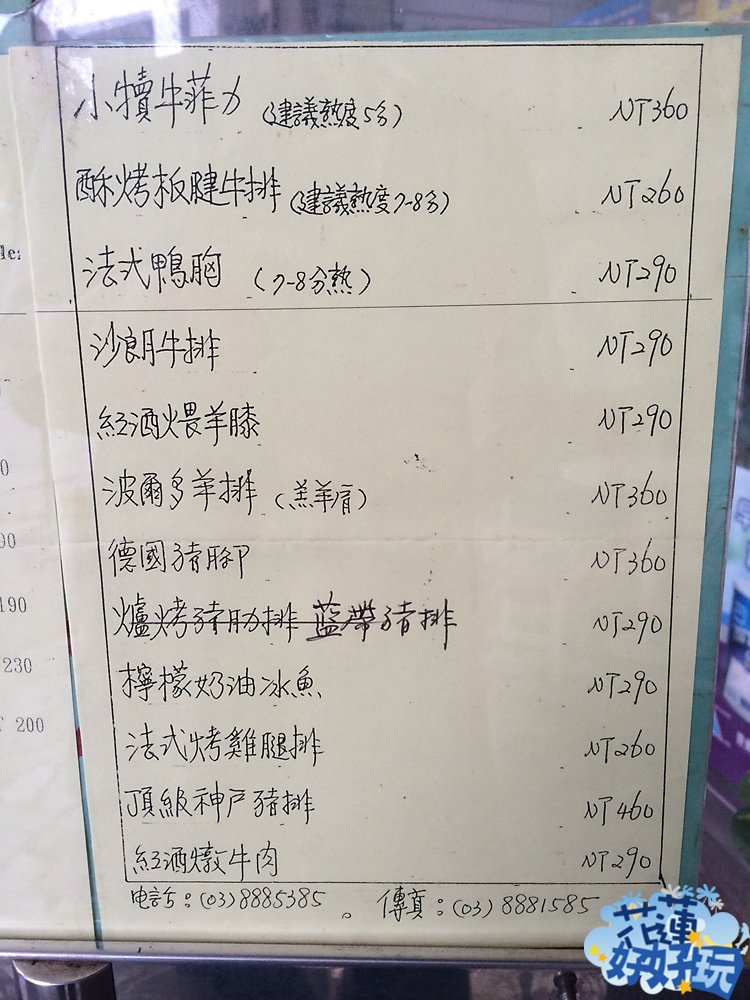 小犢牛菲力 (建議熟度5分) NT360
酥烤板腱牛排 (建議熟度7-8分) NT260
法式鴨胸 (7-8分熟) NT290
沙朗牛排 NT290
紅酒煨羊膝 NT290
波爾多羊排 (羔羊肩) NT360
德國豬腳 NT360
爐烤豬肋排 藍帶豬排 NT290
檸檬奶油冰魚 NT290
法式烤雞腿排 NT260
頂級神戶豬排 NT460
紅酒燉牛肉 NT290
电話:(03)8885385 。 傳真:(03)8881585
190
230
200
花蓮
好好玩